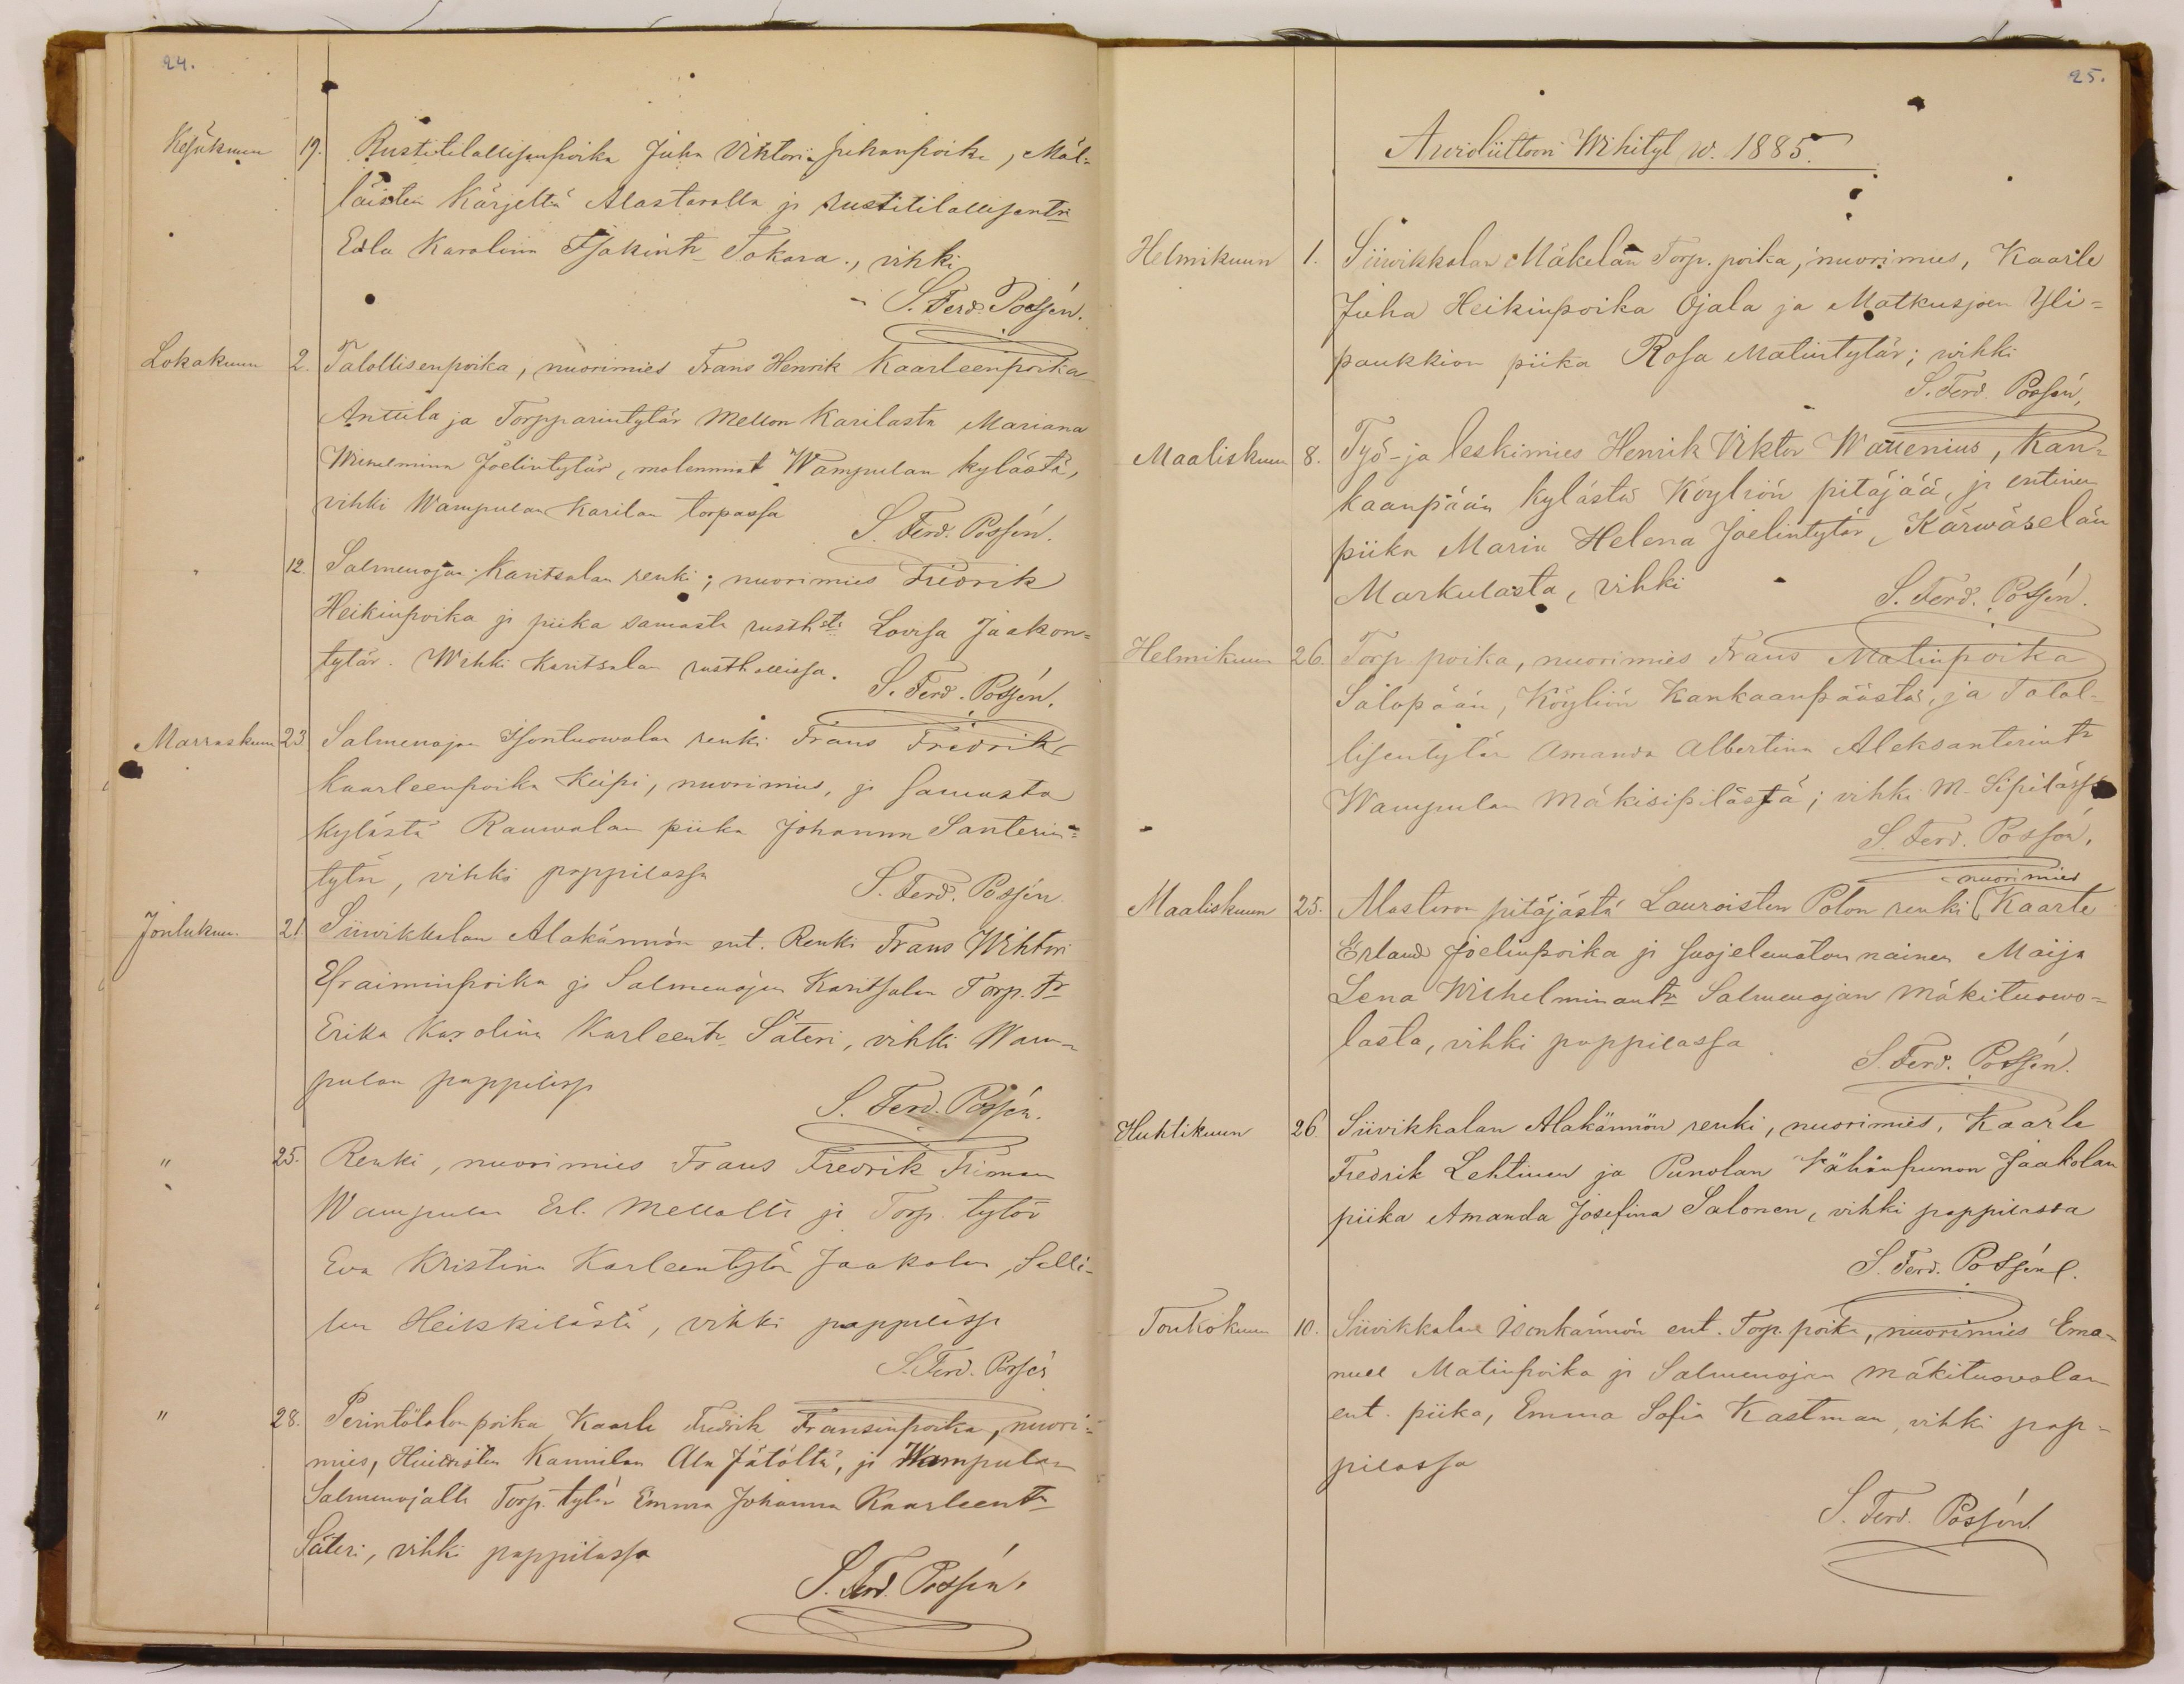 24.
Kesäkuun 19. Rustitilallisenpoika Juha Viktori Juhanpoika, Mäl-
läisten Kärjeltä Alastarolla ja rustitilallisentr
Edla Karolina Isakintr Tokara., vihki
S. Ferd. Possén.
Lokakuun 2. Talollisenpoika, nuorimies Frans Henrik Kaarleenpoika
Anttila ja Torpparintytär Mellon Karilasta Mariana
Wilhelmina Joelintytär, molemmat Wampulan kylästä,
vihki Wampulan Karilan torpassa
S. Ferd. Possén.
12. Salmenojan Karitsalan renki; nuorimies Fredrik
Heikinpoika ja piika samasta rusth.sta Lovisa Jaakon-
tytär. Wihki Karitsalan rusthollissa.
S. Ferd. Possén.
Marraskuun 23. Salmenojan Isontuowolan renki Frans Fredrik
Kaarleenpoika Keipi, nuorimies, ja samasta
kylästä Rauwolan piika Johanna Santerin-
tytär, vihki pappilassa
S. Ferd. Possén
Joulukuu. 21 Siiwikkalan Alakännön ent. Renki Frans Wihtori
Efraiminpoika ja Salmenojan Karitsalan Torp. tr
Erika Karolina Karleentr Säteri, vihki Wam-
pulan pappilassa
S. Ferd. Possén.
" 25. Renki, nuorimies Frans Fredrik Friman
Wampulan Erl. Mellolta ja Torp. tytär
Eva Kristina Karleentytär Jaakolan, Salli-
lan Heikkilästä, vihki pappilassa
S. Ferd. Possén
" 28. Perintötalon poika Kaarle Fredrik Fransinpoika, nuori-
mies, Kannilan Ala Jätöltä, ja Wampulan
Salmenojalta Torp. tytär Emma Johanna Kaarleentr
Säteri, vihki pappilassa
S. Ferd. Possén.
25.
Awioliittoon Wihityt w. 1885.
Helmikuun 1. Siiwikkalan Mäkelän Torp. poika, nuorimies, Kaarle
Juha Heikinpoika Ojala ja Matkusjoen Yli-
paukkion piika Rosa Matintytär; wihki
S. Ferd. Possén,
Maaliskuun 8. Työ- ja leskimies Henrik Viktor Warenius, Kan-
kaanpään kylästä Köyliön pitäjää, ja entinen
piika Maria Helena Joelintytär, Kärwäselän
Markulasta, vihki
S. Ferd. Possén.
Helmikuun 26. Torp. poika, nuorimies Frans Matinpoika
Salopään, Köyliön Kankaanpäästä, ja Talol-
lisentytär Amanda Albertina Aleksanterintr
Wampulan Mäkisipilästä; vihki M. Sipilässä
S. Ferd. Possén.
nuorimies
Maaliskuun 25. Alastaron pitäjästä Lauroisten Polon renki (Kaarle
Erland Joelinpoika ja suojelematon nainen Maija
Lena Wilhelminantr Salmenojan Mäkituowo-
lasta, vihki pappilassa
S. Ferd. Possén.
Huhtikuun 26. Siivikkalan Alakännön renki, nuorimies, Kaarle
Fredrik Lehtinen ja Punolan Vähänpunon Jaakolan
piika Amanda Josefina Salonen, vihki pappilassa
S. Ferd. Possén.
Toukokuun 10. Siivikkalan Isonkännön ent. Torp. poika, nuorimies Ema-
nuel Matinpoika ja Salmenojan Mäkituowolan
ent. piika, Emma Sofia Kastman, vihki pap-
pilassa
S. Ferd. Possén.